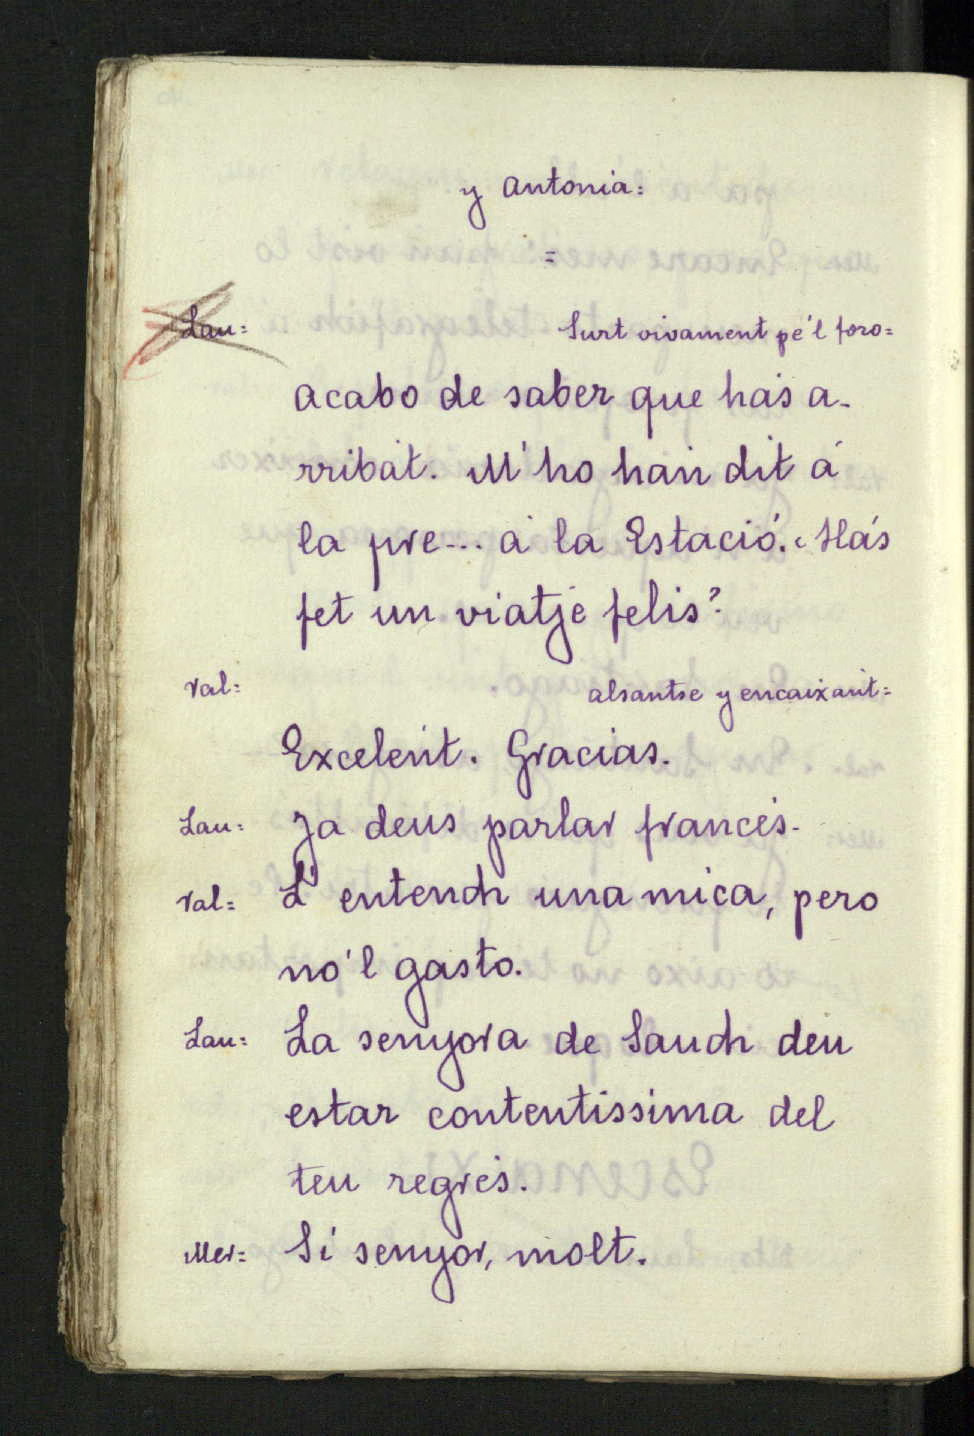 y Antonia:
=
Lau= Surt vivament pe'l foro=
Acabo de saber que has a-
rribat. M'ho han dit á
la pre... á la Estació. ¿Hás
fet un viatje felis?
Val= alsantse y encaixant=
Excelent. Gracias.
Lau= Ja deus parlar francés.
Val= L'entench una mica, pero
no'l gasto.
Lau= La senyora de Sauch deu
estar contentissima del
teu regrés.
Mer= Sí senyor, molt.